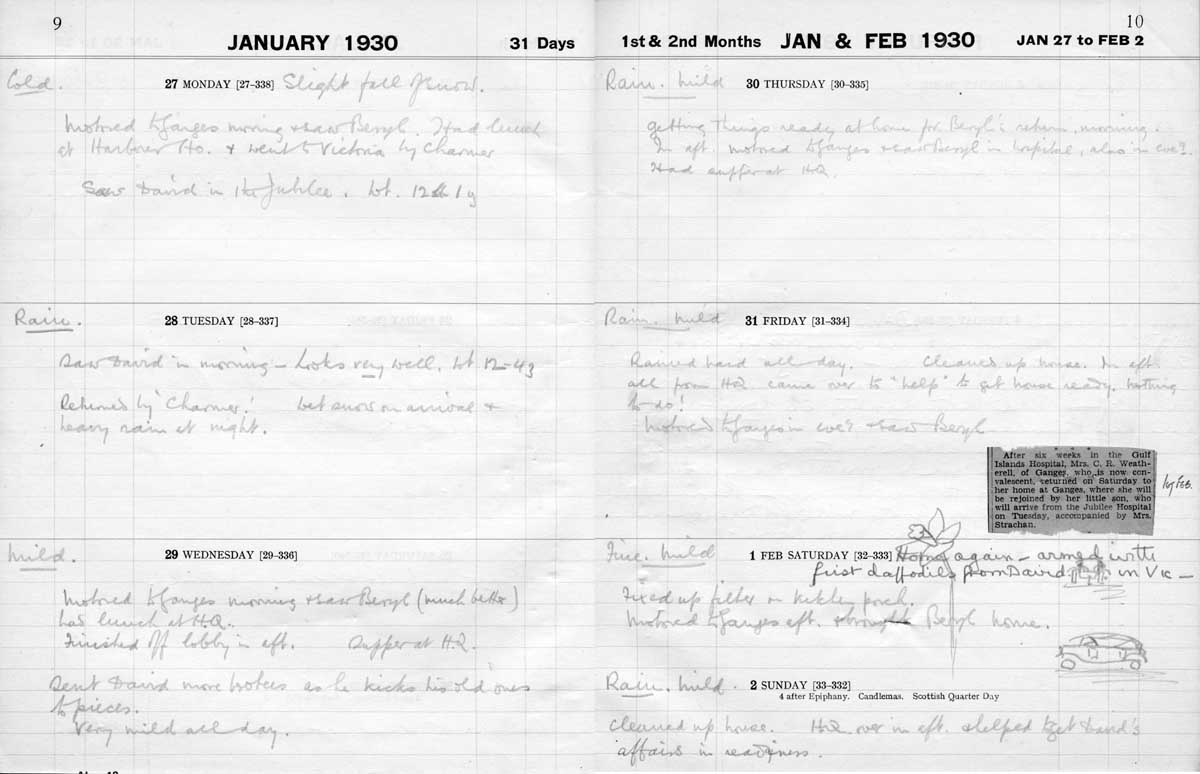 9
JANUARY 1930 31 Days
Cold. 27 MONDAY [27–338] Slight fall of snow.
Motored to Ganges morning & saw Beryl. Had lunch
at Harbour Ho. & went to Victoria by Charmer
Saw David in the Jubilee. Wt. 12 lb 1 g
Rain. 28 TUESDAY [28–337]
Saw David in morning – Looks very well, wt 12–4
Returned by "Charmer". Wet snow on arrival &
heavy rain at night.
Mild. 29 WEDNESDAY [29–336]
Motored to Ganges morning & saw Beryl (much better)
had lunch at H.Q.
Finished off lobby in aft. Supper at H.Q.
Sent David more bootees as he kicks his old ones
to pieces.
Very mild all day.
10
1st & 2nd Months JAN & FEB 1930 JAN 27 to FEB 2
Rain. Mild 30 THURSDAY [30–335]
Getting things ready at home for Beryl's return, morning.
In aft motored to Ganges & saw Beryl in hospital, also in eve.
Had supper at HQ.
Rain. Mild 31 FRIDAY [31–334]
Rained hard all day. Cleaned up house. In aft
all from HQ came over to "help" to get house ready, nothing
to do!
Motored to Ganges in eve. & saw Beryl
After six weeks in the Gulf
Islands Hospital, Mrs. C. R. Weath-
erell, of Ganges, who is now con-
valescent, returned on Saturday to
her home at Ganges, where she will
be rejoined by her little son, who
will arrive from the Jubilee Hospital
on Tuesday, accompanied by Mrs.
Strachan.
Feb.
Fine. Mild 1 FEB SATURDAY [32–333] Home again – armed with
first daffodils from David in Vic –
Fixed up filter on kitchen porch.
Motored to Ganges aft. & brought Beryl home.
Rain. Mild. 2 SUNDAY [33–332]
4 after Epiphany. Candlemas. Scottish Quarter Day
Cleaned up house. HQ over in aft. & helped to get David's
affairs in readiness.